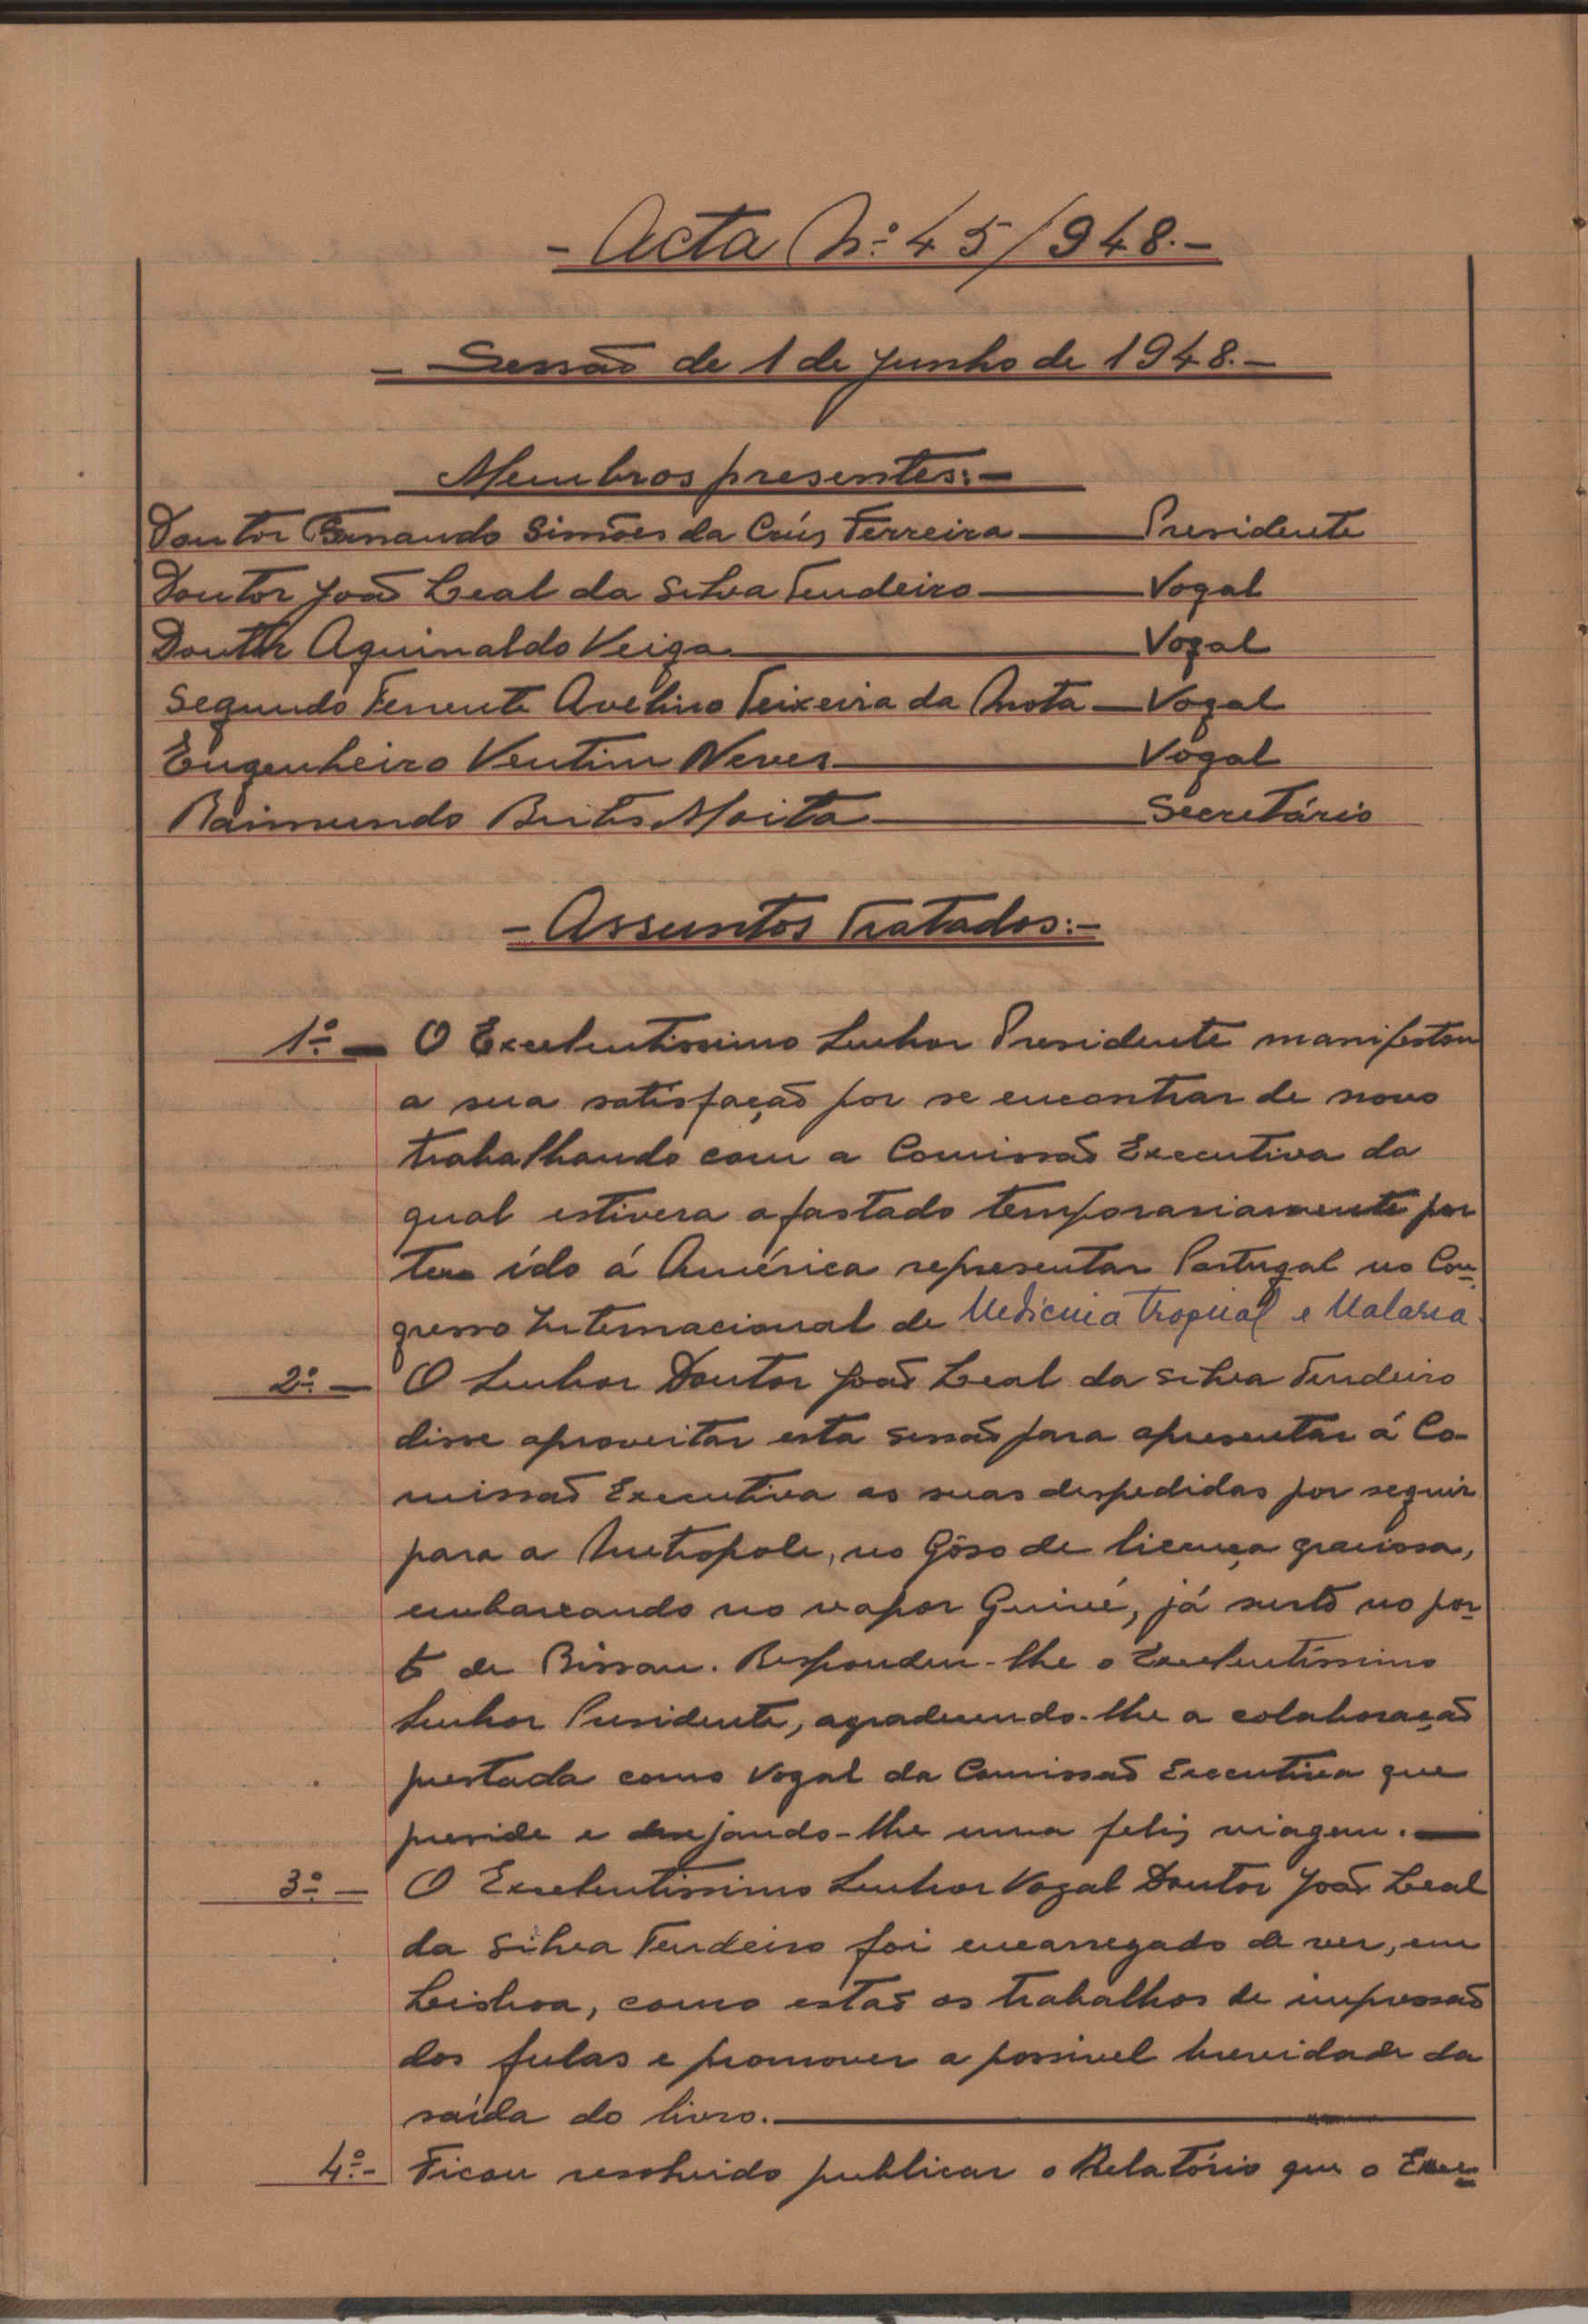 - Acta N.º 45/948.-
- Sessão de 1 de Junho de 1948.-
Membros presentes:-
Doutor Fernando Simões da Crús Ferreira — Presidente
Doutor João Leal da Silva Tendeiro — Vogal
Doutor Aguinaldo Veiga — Vogal
Segundo Tenente Avelino Teixeira da Mota — Vogal
Engenheiro Ventim Neves — Vogal
Raimundo Brito Moita — Secretário
- Assuntos Tratados:-
1.º - O Excelentissimo Senhor Presidente manifestou
a sua satisfação por se encontrar de novo
trabalhando com a Comissão Executiva da
qual estivera afastado temporariamente por
ter ído á América representar Portugal no Con-
gresso Internacional de Medicina Tropical e Malaria.
2.º - O Senhor Doutor João Leal da Silva Tendeiro
disse aproveitar esta sessão para apresentar á Co-
missão Executiva as suas despedidas por seguir
para a Metropole, no Gôso de licença graciosa,
embarcando no vapor Guiné, já surto no por-
to de Bissau. Respondeu-lhe o Excelentíssimo
Senhor Presidente, agradecendo-lhe a colaboração
prestada como Vogal da Comissão Executiva que
preside e desejando-lhe uma feliz viagem. —
3.º - O Excelentissimo Senhor Vogal Doutor João Leal
da Silva Tendeiro foi encarregado de ver, em
Lisboa, como estão os trabalhos de impressão
dos fulas e promover a possivel brevidade da
saída do livro. —
4.º - Ficou resolvido publicar o Relatório que o Exce-